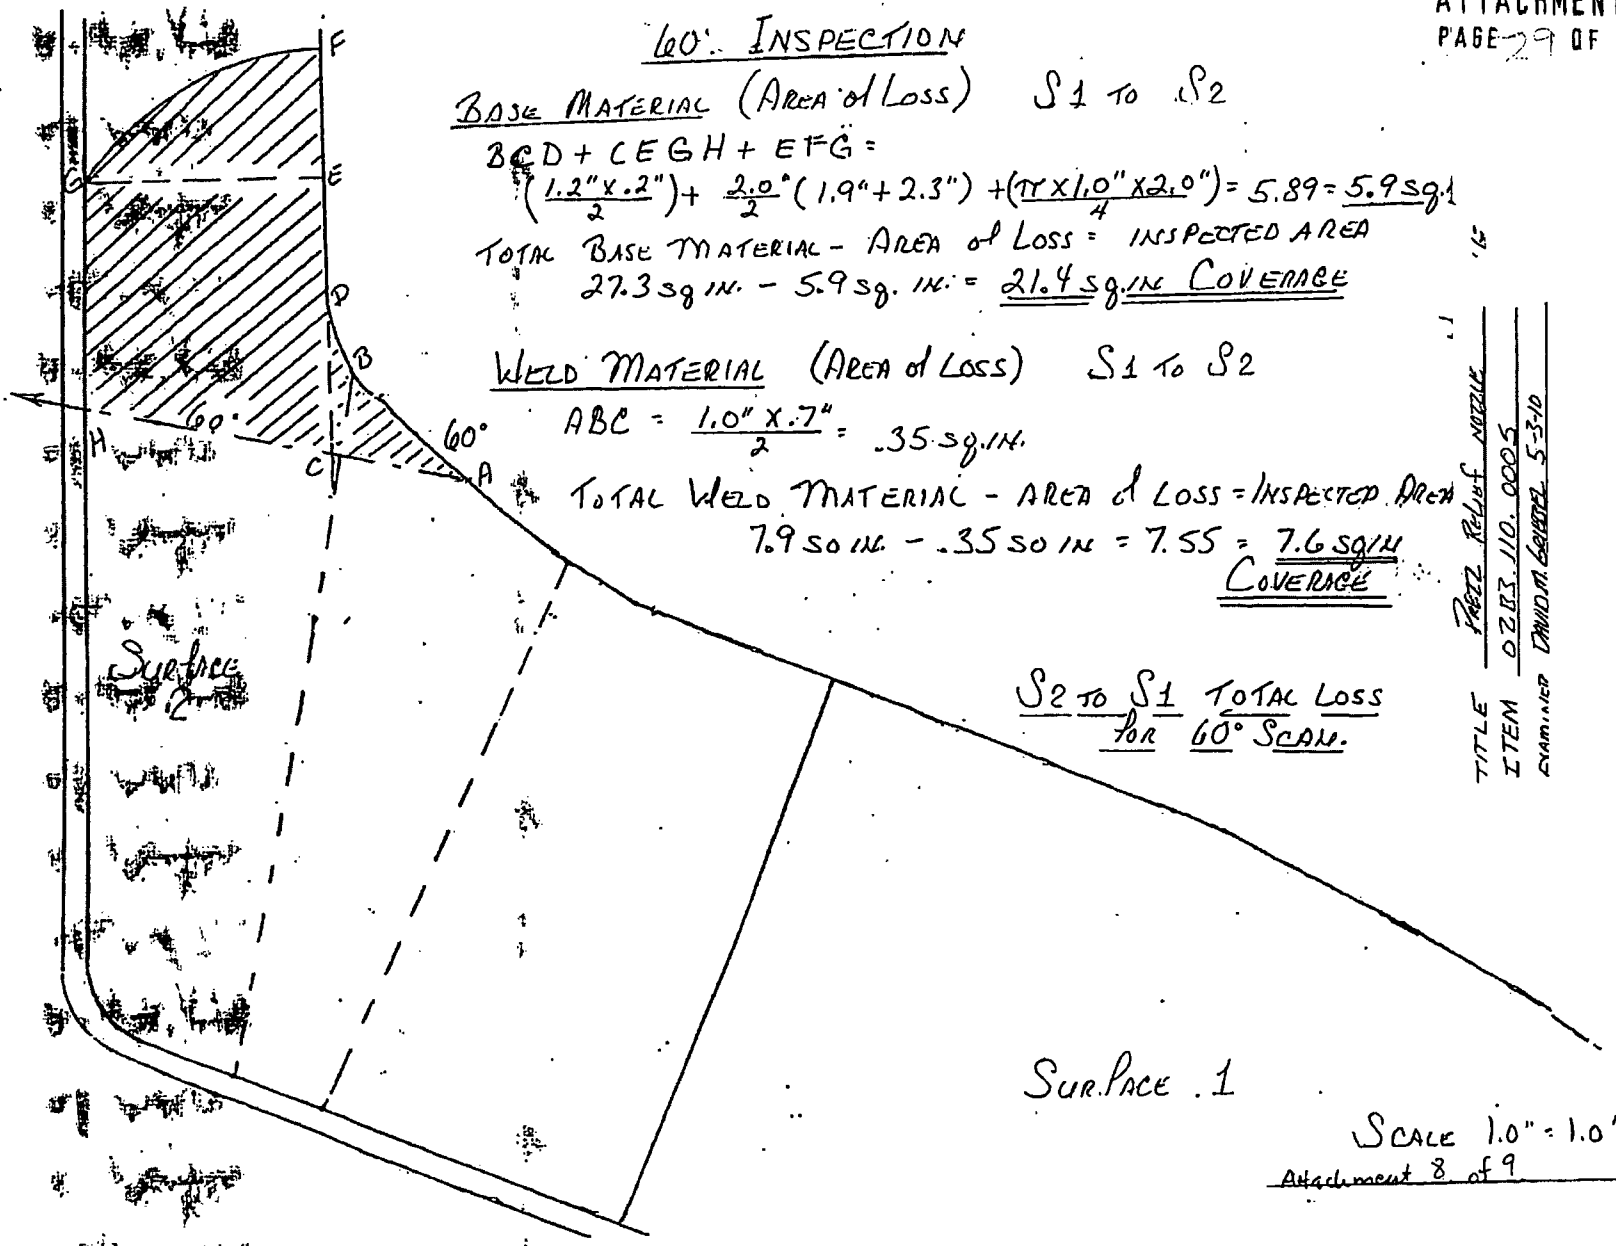 ATTACHMENT
PAGE 29 OF
60° INSPECTION
BASE MATERIAL (AREA of LOSS) S1 TO S2
BCD + CEGH + EFG =
(1.2" X .2"/2) + 2.0"/2 (1.9" + 2.3") + (π X 1.0" X 2.0"/4) = 5.89 = 5.9 sq.
TOTAL BASE MATERIAL - AREA of LOSS = INSPECTED AREA
27.3 sq IN. - 5.9 sq. IN. = 21.4 sq. IN COVERAGE
WELD MATERIAL (AREA of LOSS) S1 TO S2
ABC = 1.0" X .7"/2 = .35 sq. IN.
TOTAL WELD MATERIAL - AREA of LOSS = INSPECTED AREA
7.9 SQ IN. - .35 SQ IN = 7.55 = 7.6 sq IN
COVERAGE
S2 TO S1 TOTAL LOSS
FOR 60° SCAN.
F
G
E
D
B
H
60°
C
60°
A
Surface
2
SURFACE 1
SCALE 1.0" = 1.0"
Attachment 8 of 9
TITLE PREZ Relief NOZZLE
ITEM 02B3.110.0005
EXAMINER DAVID M. 5-3-10